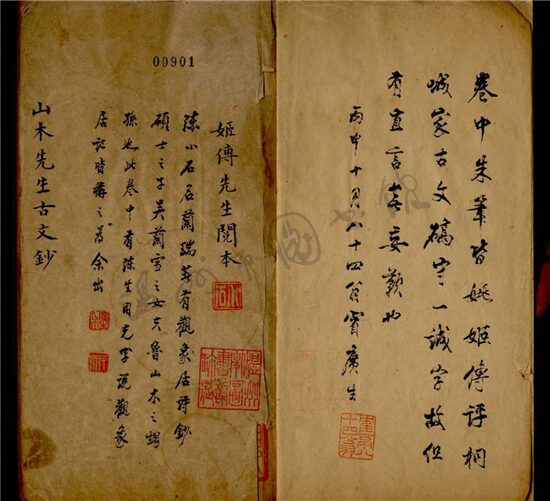 卷中朱筆皆姚姬傳評桐
城家古文碻守一誠字故但
有直言無妄歎也
丙申十月八十四翁冒廣生
00901
姬傳先生閱本
陳小石名蘭瑞著有觀象居詩鈔
碩士之子吳蘭雪之女夫魯山木之甥
孫也此卷中有陳生用光字說觀象
居記皆稱之為余出
山木先生古文鈔